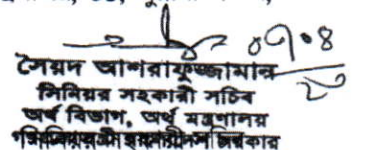 ০৭.০৪
২০
সৈয়দ আশরাফুজ্জামান
সিনিয়র সহকারী সচিব
অর্থ বিভাগ, অর্থ মন্ত্রণালয়